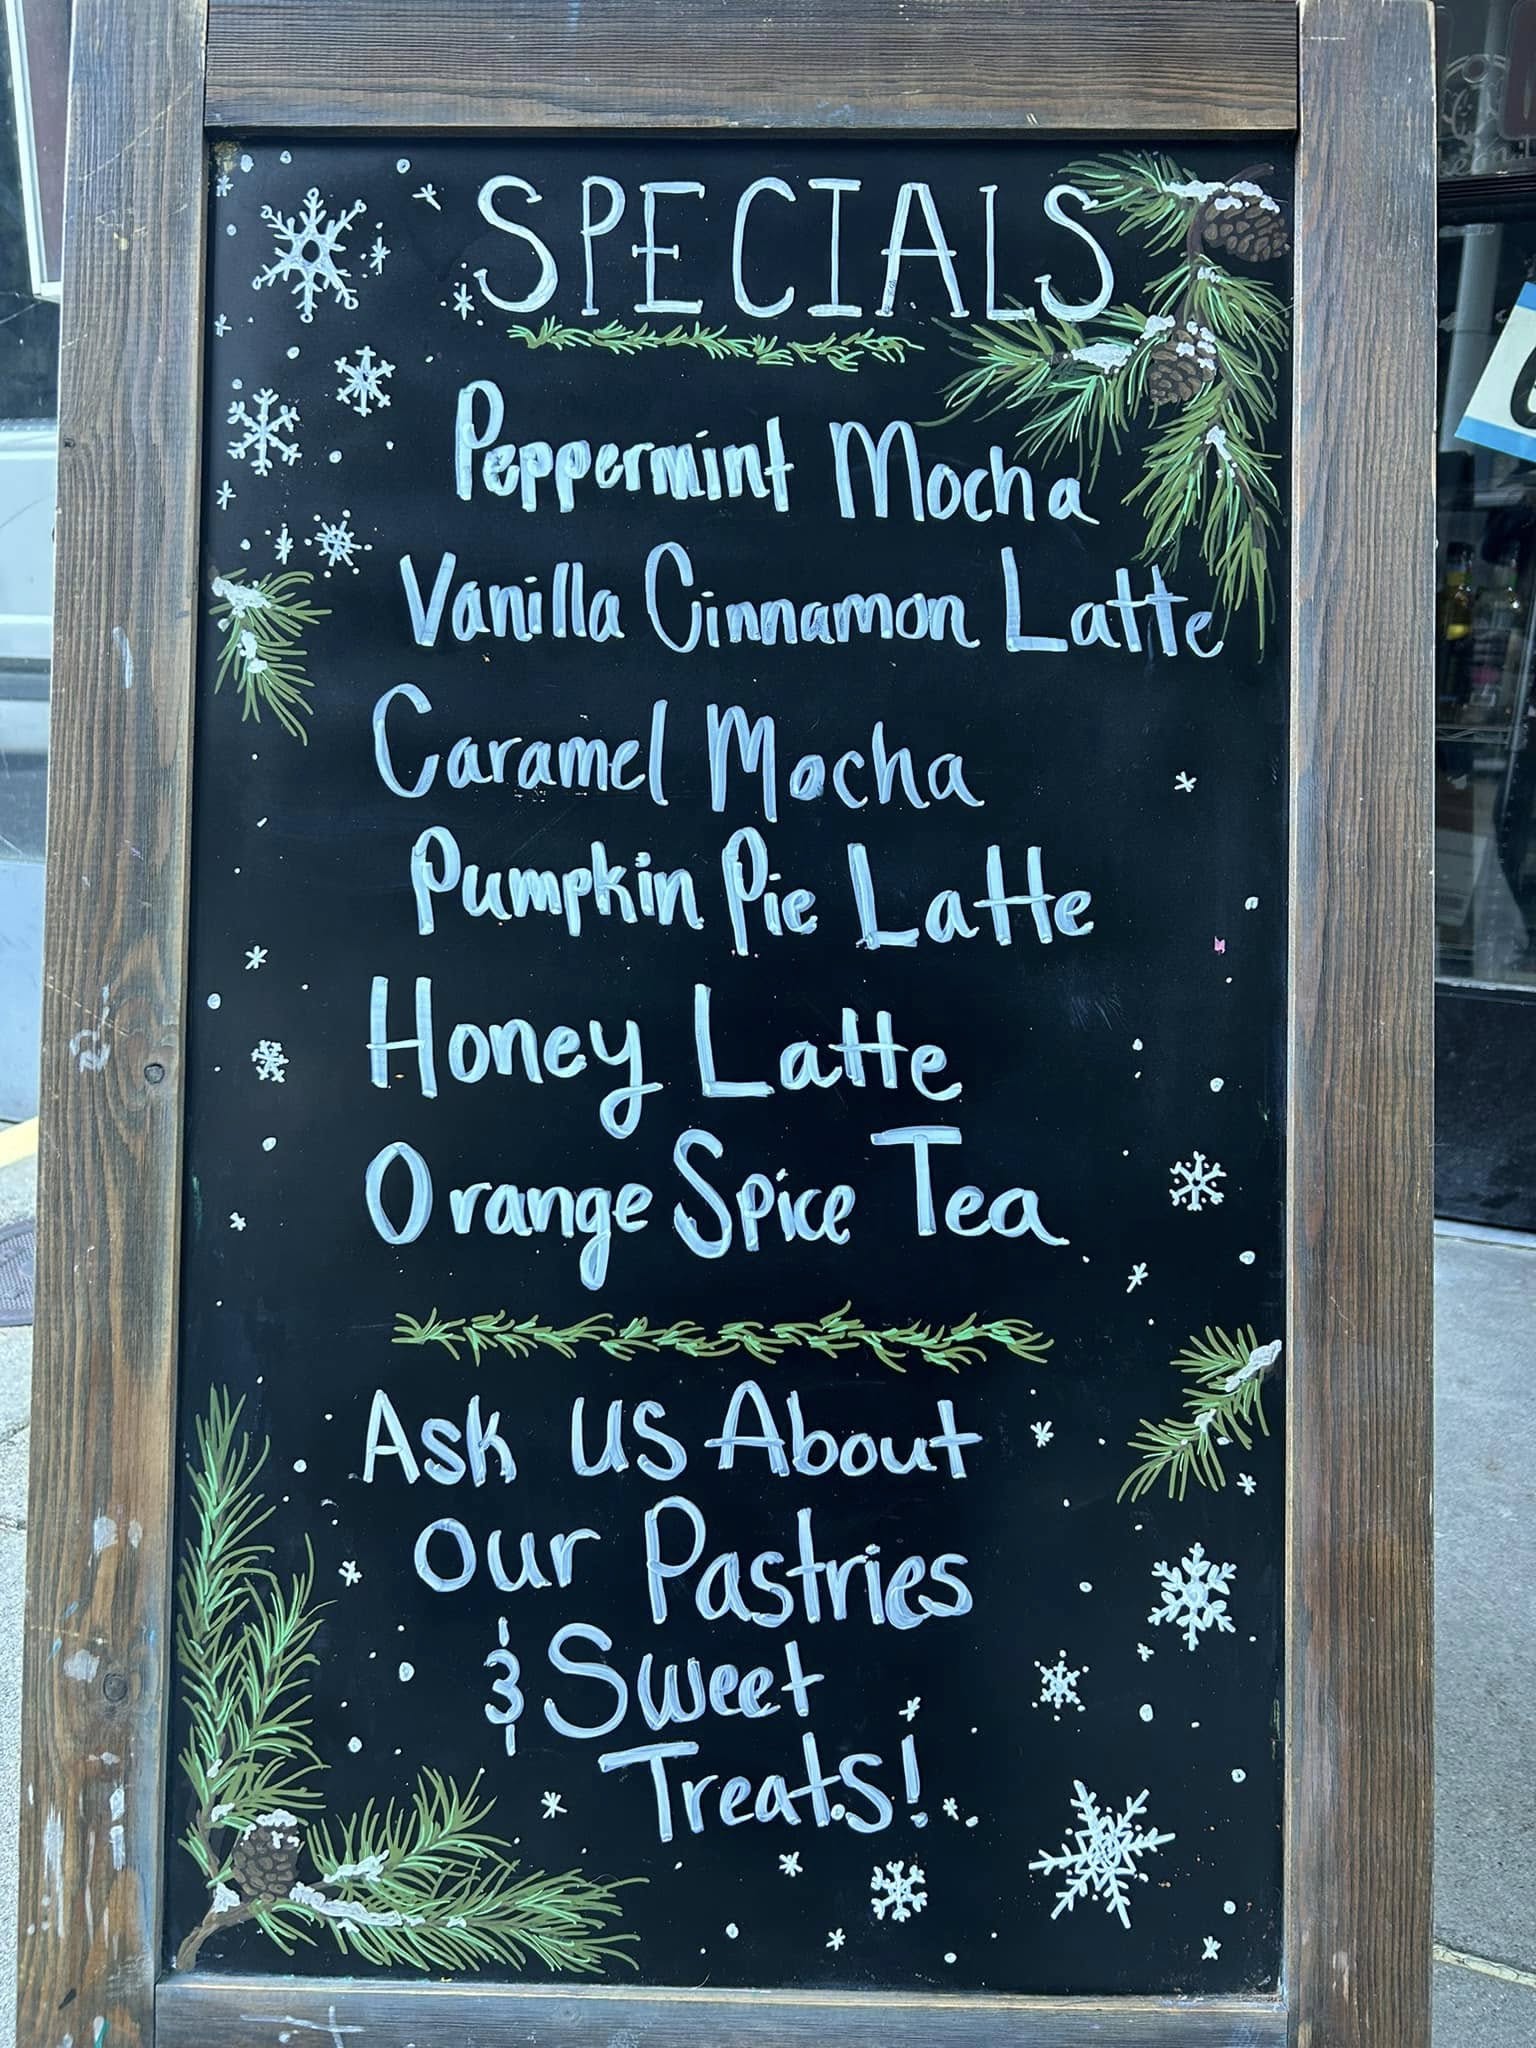 SPECIALS
Peppermint Mocha
Vanilla Cinnamon Latte
Caramel Mocha
Pumpkin Pie Latte
Honey Latte
Orange Spice Tea
Ask us About
our Pastries
& Sweet
Treats!